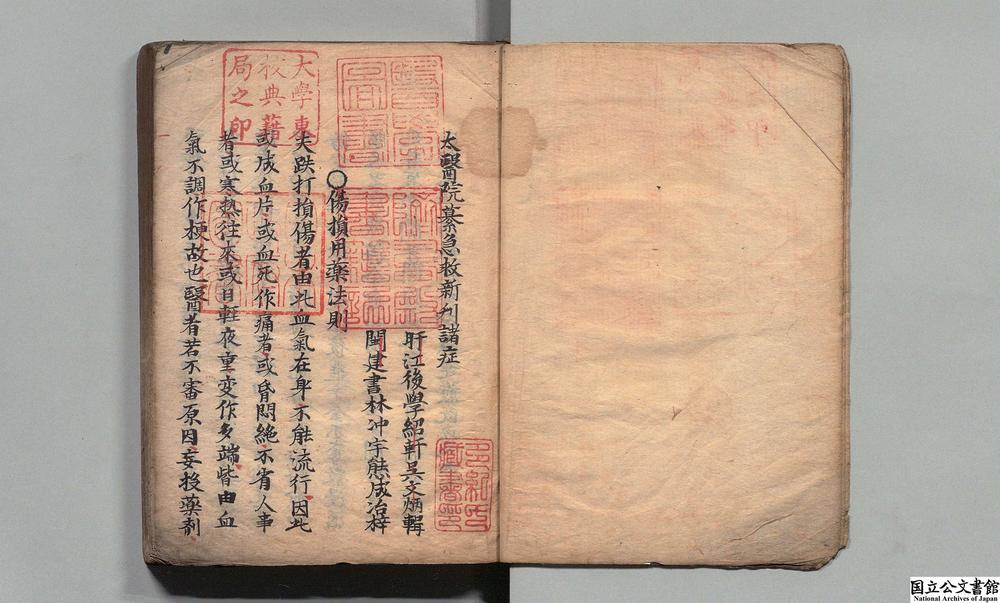 太醫院纂急救新刊諸症
盱江後學紹軒吳文炳輯
閩建書林冲宇熊成冶梓
〇傷損用藥法則
夫跌打損傷者由此血氣在身不能流行因此
或成血片或血死作痛者或昏悶絕不省人事
者或寒熱往來或日輕夜重变作多端皆由血
氣不調作梗故也醫者若不審原因妄投藥剤
大學東
校典藉
局之印
国立公文書館
National Archives of Japan